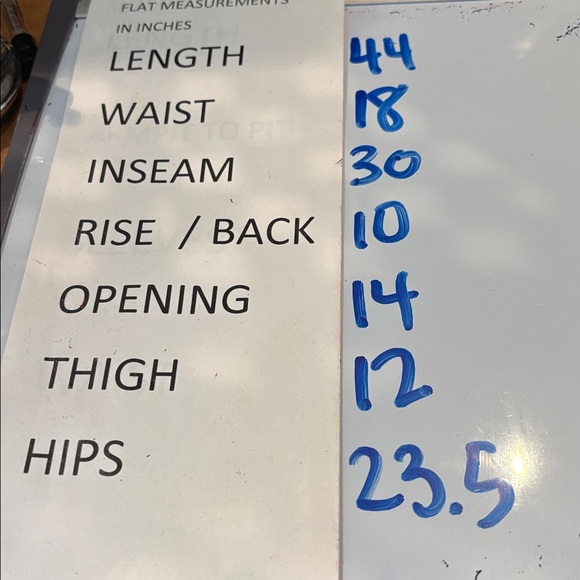 FLAT MEASUREMENTS
IN INCHES
LENGTH 44
WAIST 18
INSEAM 30
RISE / BACK 10
OPENING 14
THIGH 12
HIPS 23.5